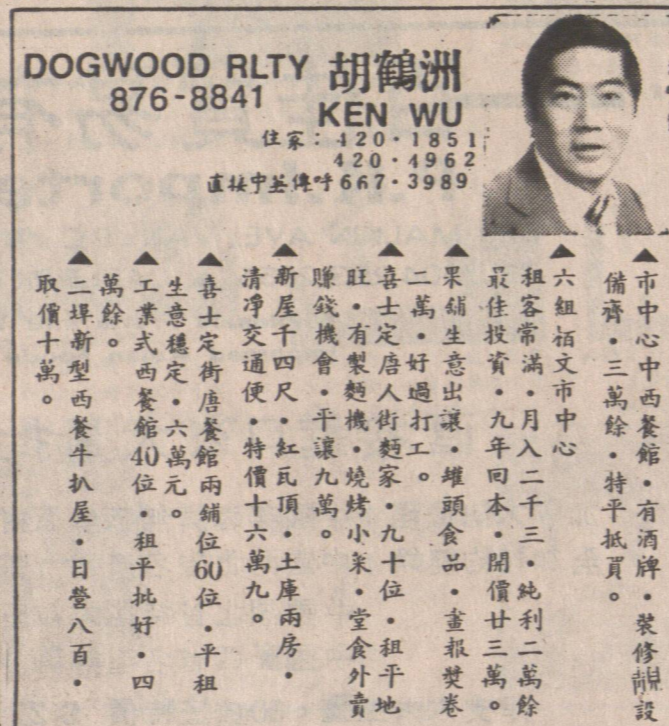 DOGWOOD RLTY
876-8841
胡鶴洲
KEN WU
住家：420·1851
420·4962
直接中英傳呼667·3989
▲市中心中西餐館·有酒牌·裝修靚設
備齊·三萬餘·特平抵買。
▲六組栢文市中心
租客常滿·月入二千三·純利二萬餘
最佳投資·九年回本·開價廿三萬。
▲果舖生意出讓·罐頭食品·畫報獎卷
二萬·好過打工。
▲喜士定唐人街麵家·九十位·租平地
旺·有製麵機·燒烤小菜·堂食外賣
賺錢機會·平讓九萬。
▲新屋千四尺·紅瓦頂·土庫兩房·
清凈交通便·特價十六萬九。
▲喜士定街唐餐館兩鋪位60位·平租
生意穩定·六萬元。
▲工業式西餐館40位·租平批好·四
萬餘。
▲二埠新型西餐牛扒屋·日營八百·
取價十萬。